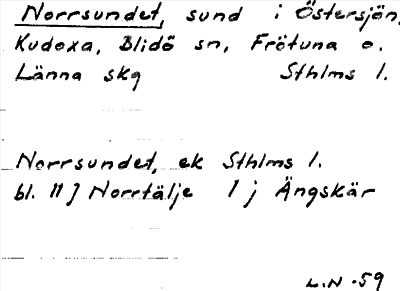 Norrsundet, sund i Östersjön,
Kudoxa, Blidö sn, Frötuna o.
Länna skg Sthlms l.
Norrsundet, ek Sthlms l.
bl. 11 J Norrtälje 1 j Ängskär
L.N -59